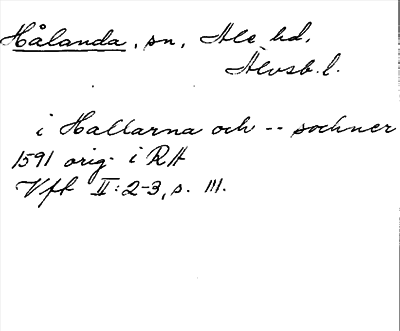 Hålanda, sn, Ale hd.
Älvsb. l.
i Hallarna och -- sochner
1591 orig. i RA
Vft II:2-3, s. 111.